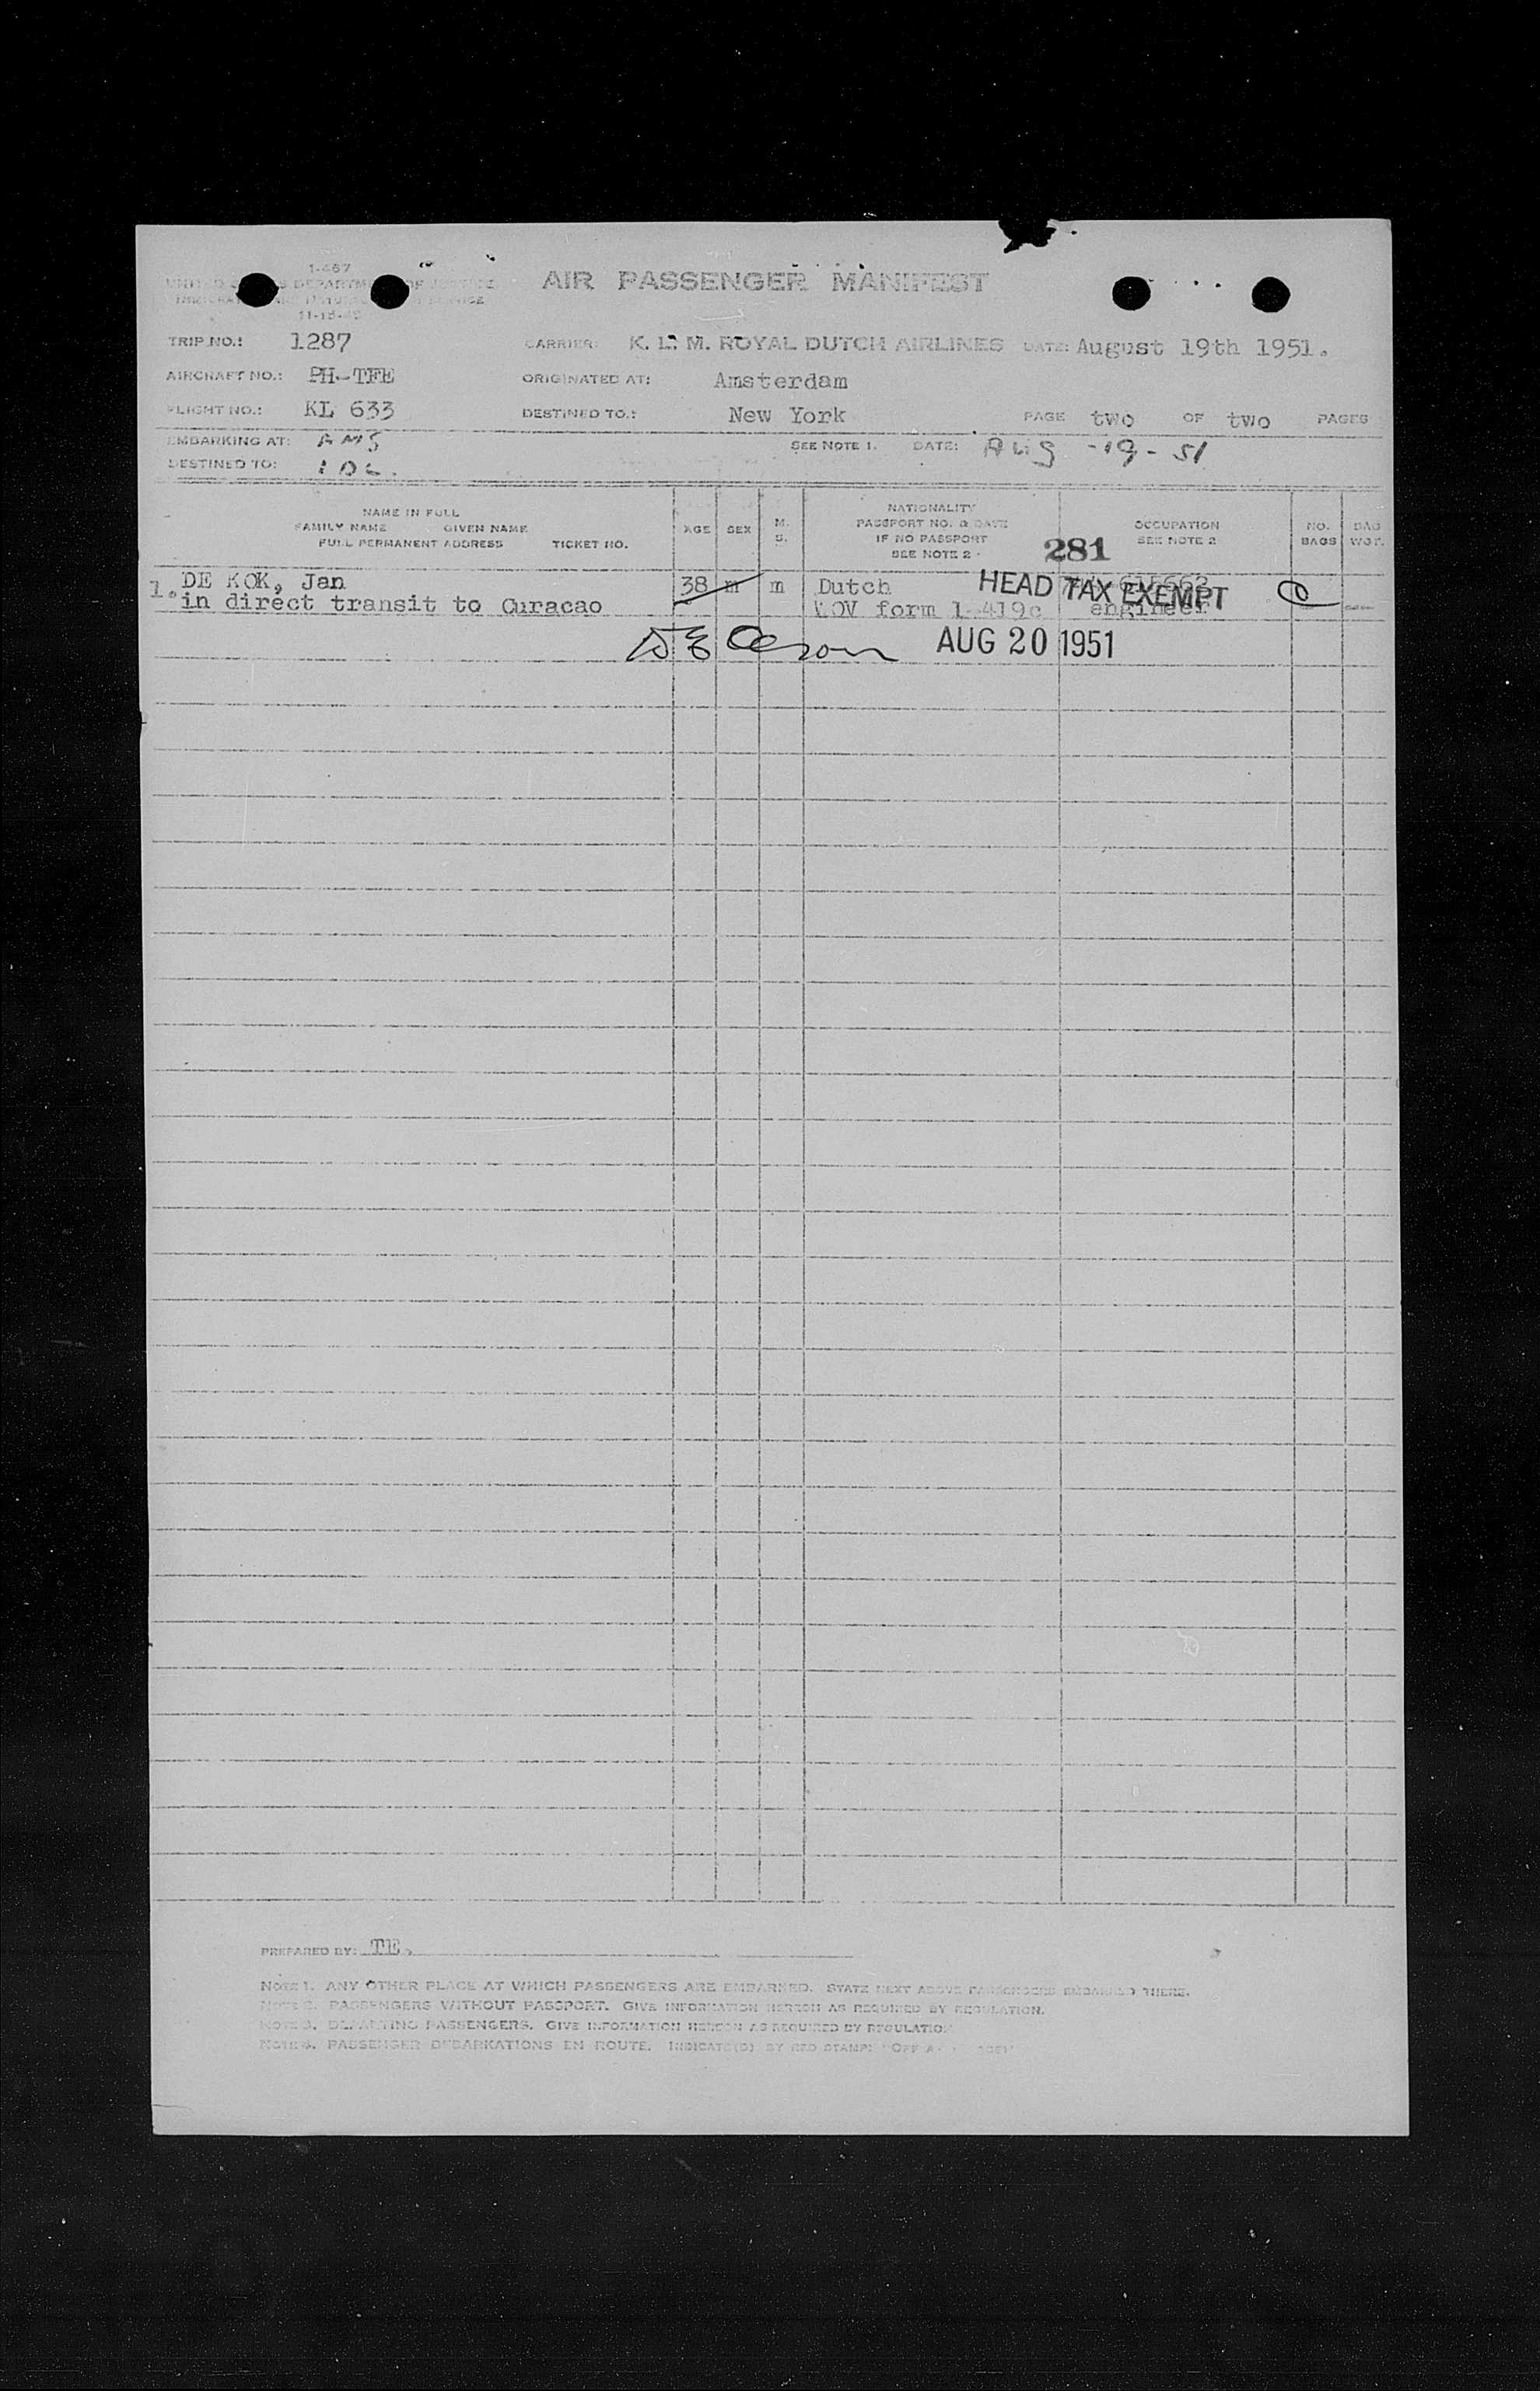 1-467
AIR PASSENGER MANIFEST
11-15-45
TRIP NO.: 1287 CARRIER: K. L. M. ROYAL DUTCH AIRLINES DATE: August 19th 1951.
AIRCRAFT NO.: PH-TFE ORIGINATED AT: Amsterdam
FLIGHT NO.: KL 633 DESTINED TO.: New York PAGE two OF two PAGES
EMBARKING AT: AMS SEE NOTE 1. DATE: Aug -19-51
DESTINED TO:
NAME IN FULL
FAMILY NAME GIVEN NAME
FULL PERMANENT ADDRESS TICKET NO.
AGE
SEX
M.
S.
NATIONALITY
PASSPORT NO. & DATE
IF NO PASSPORT
SEE NOTE 2
OCCUPATION
SEE NOTE 2
NO.
BAGS
BAG
WGT.
281
1. DE KOK, Jan 38 m m Dutch
HEAD TAX EXEMPT
in direct transit to Curacao form 1-419c engineer
AUG 20 1951
PREPARED BY: TE.
NOTE 1. ANY OTHER PLACE AT WHICH PASSENGERS ARE EMBARKED. STATE NEXT ABOVE PASSENGERS EMBARKED THERE.
NOTE 2. PASSENGERS WITHOUT PASSPORT. GIVE INFORMATION HEREON AS REQUIRED BY REGULATION.
NOTE 3. DEPARTING PASSENGERS. GIVE INFORMATION HEREON AS REQUIRED BY REGULATION
NOTE 4. PASSENGER DEBARKATIONS EN ROUTE. INDICATE(D) BY RED STAMP: